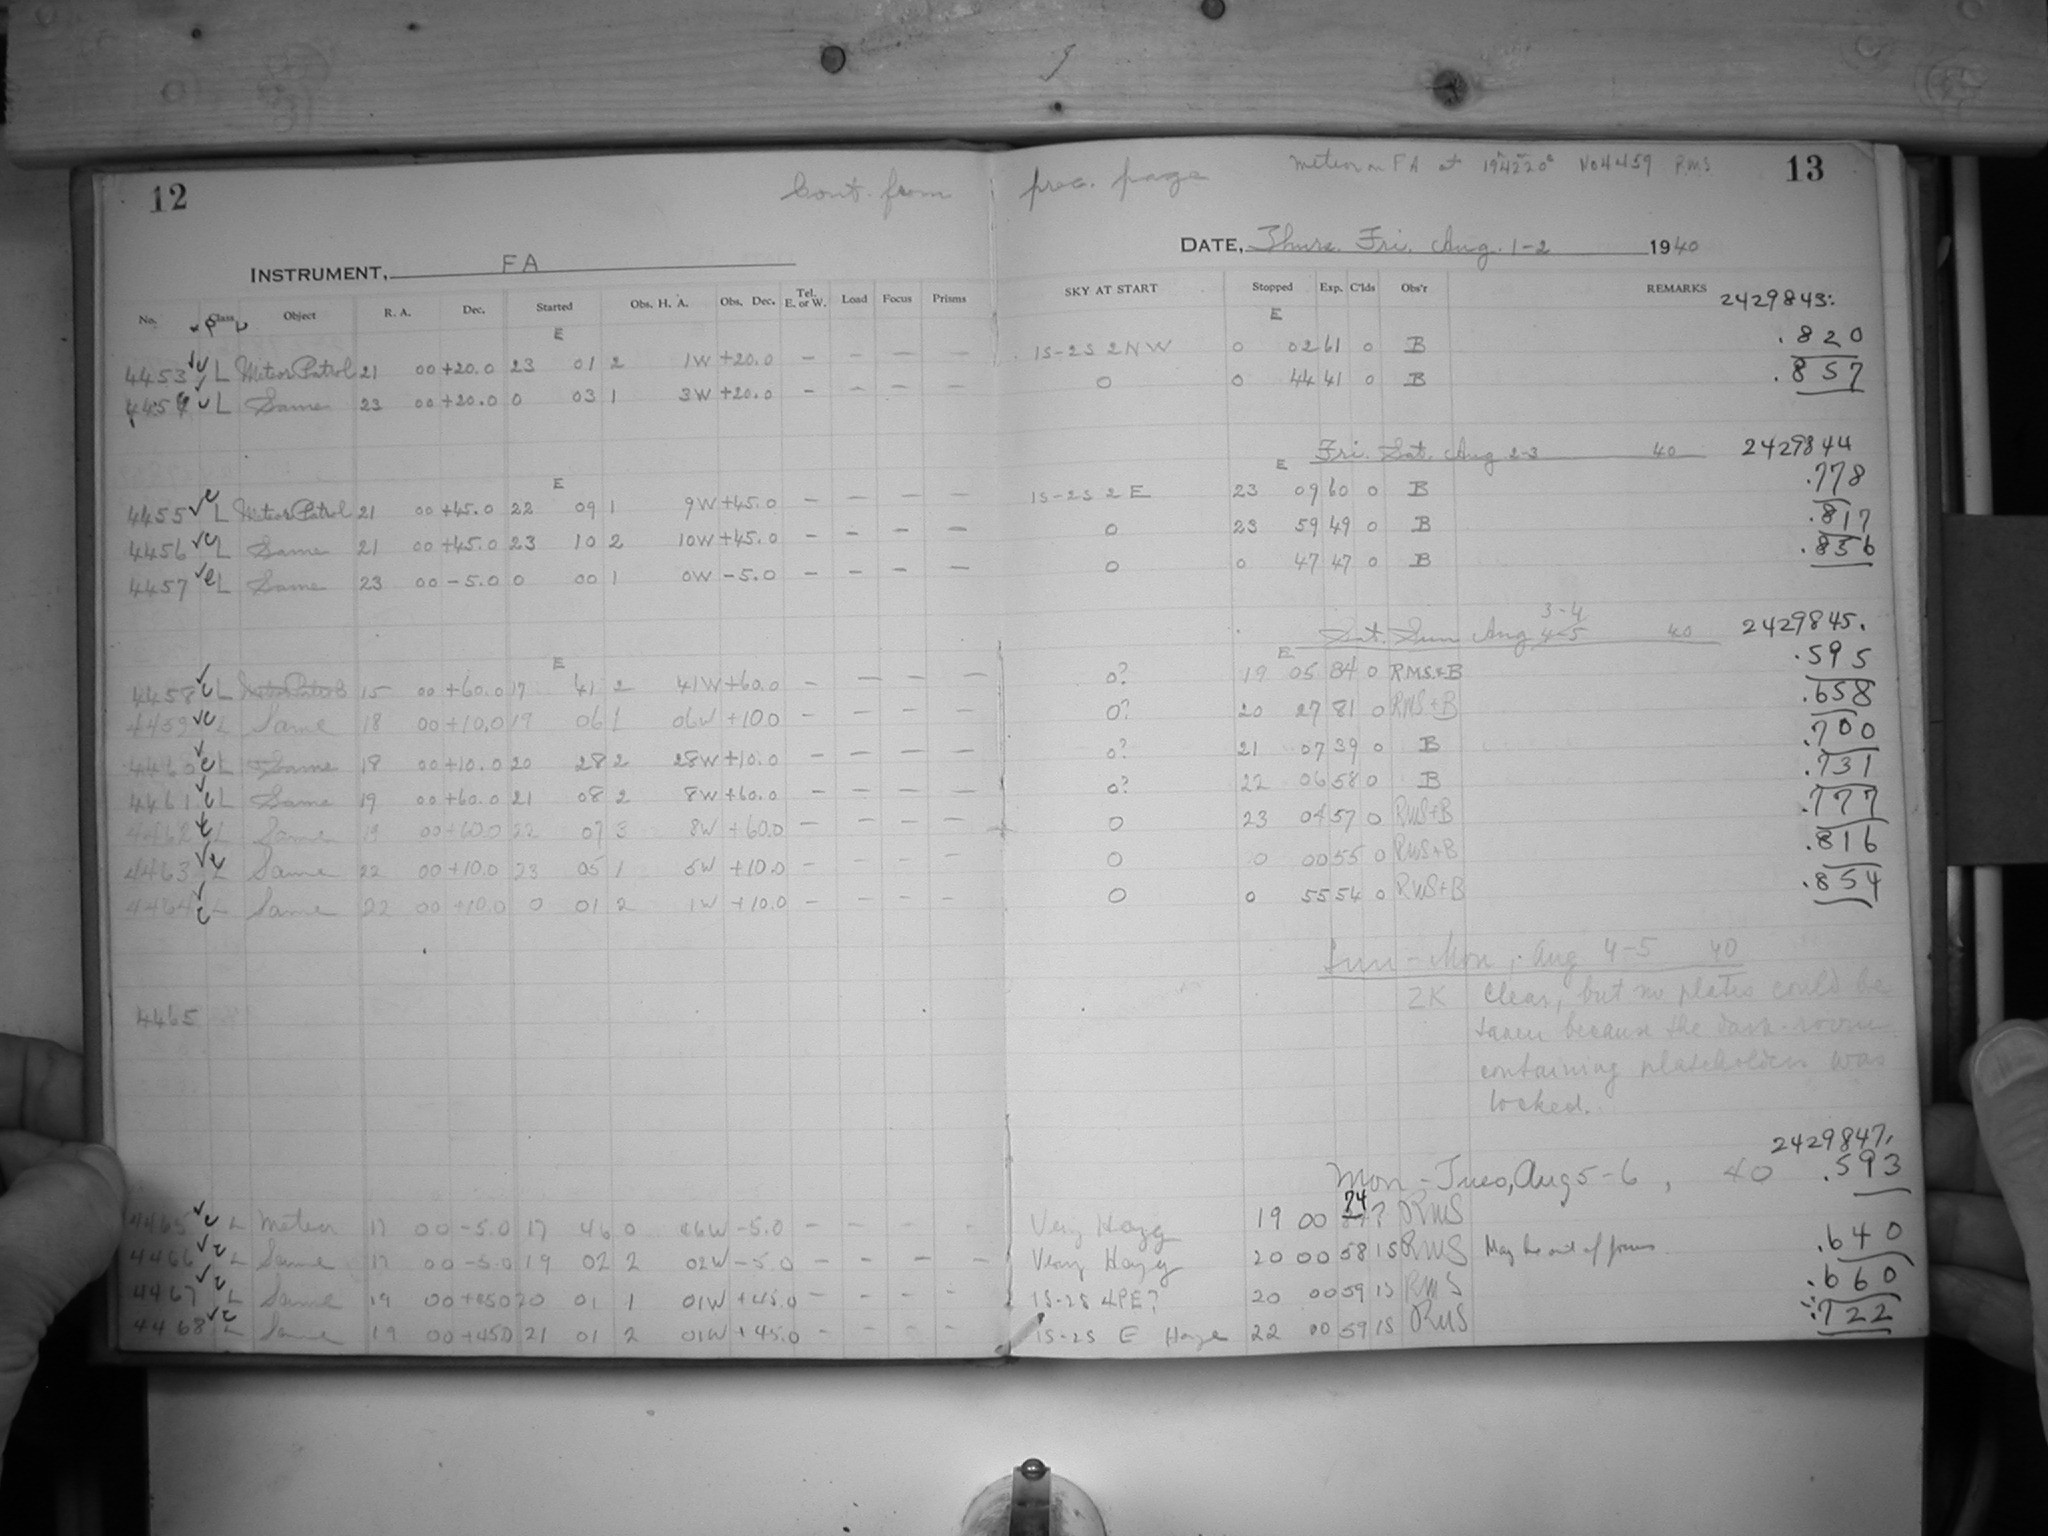 12 Cont. from prec. page Meteor on FA at 19h42m20s No 4459 RMS 13
INSTRUMENT, FA DATE, Thurs. Fri. Aug. 1-2 1940
No. Class Object R. A. Dec. Started Obs. H. A. Obs. Dec. Tel. E. or W. Load Focus Prisms SKY AT START Stopped Exp. C'lds Obs'r REMARKS 2429843.
E E
4453 L Meteor Patrol 21 00 +20.0 23 01 2 1W +20.0 — — — — 1S-2S 2NW 0 02 61 0 B .820
4454 L Same 23 00 +20.0 0 03 1 3W +20.0 — — — — 0 0 44 41 0 B .857
Fri. Sat. Aug 2-3 40 2429844
E E
4455 L Meteor Patrol 21 00 +45.0 22 09 1 9W +45.0 — — — — 1S-2S 2E 23 09 60 0 B .778
4456 L Same 21 00 +45.0 23 10 2 10W +45.0 — — — — 0 23 59 49 0 B .817
4457 L Same 23 00 -5.0 0 00 1 0W -5.0 — — — — 0 0 47 47 0 B .856
3-4
Sat. Sun Aug 4-5 40 2429845.
E E
4458 L Meteor Patrol 15 00 +60.0 17 41 2 41W +60.0 — — — — 0? 19 05 84 0 RMS+B .595
4459 L Same 18 00 +10.0 19 06 1 06W +10.0 — — — — 0? 20 27 81 0 RMS+B .658
4460 L Same 18 00 +10.0 20 28 2 28W +10.0 — — — — 0? 21 07 39 0 B .700
4461 L Same 19 00 +60.0 21 08 2 8W +60.0 — — — — 0? 22 06 58 0 B .731
4462 L Same 19 00 +60.0 22 07 3 8W +60.0 — — — — 0 23 04 57 0 RMS+B .777
4463 L Same 22 00 +10.0 23 05 1 5W +10.0 — — — — 0 0 00 55 0 RMS+B .816
4464 L Same 22 00 +10.0 0 01 2 1W +10.0 — — — — 0 0 55 54 0 RMS+B .854
Sun - Mon, Aug 4-5 40
4465 2K Clear, but no plates could be
taken because the dark-room
containing plateholders was
locked.
2429847.
Mon - Tues, Aug 5-6, 40 .593
74
4465 L Meteor 17 00 -5.0 17 46 0 46W -5.0 — — — — Very Hazy 19 00 ? RMS
4466 L Same 17 00 -5.0 19 02 2 02W -5.0 — — — — Very Hazy 20 00 58 1S RMS May be out of focus .640
4467 L Same 19 00 +45.0 20 01 1 01W +45.0 — — — — 1S-2S 4PE? 20 00 59 1S RMS .660
4468 L Same 19 00 +45.0 21 01 2 01W +45.0 — — — — 1S-2S E Haze 22 00 59 1S RMS .722